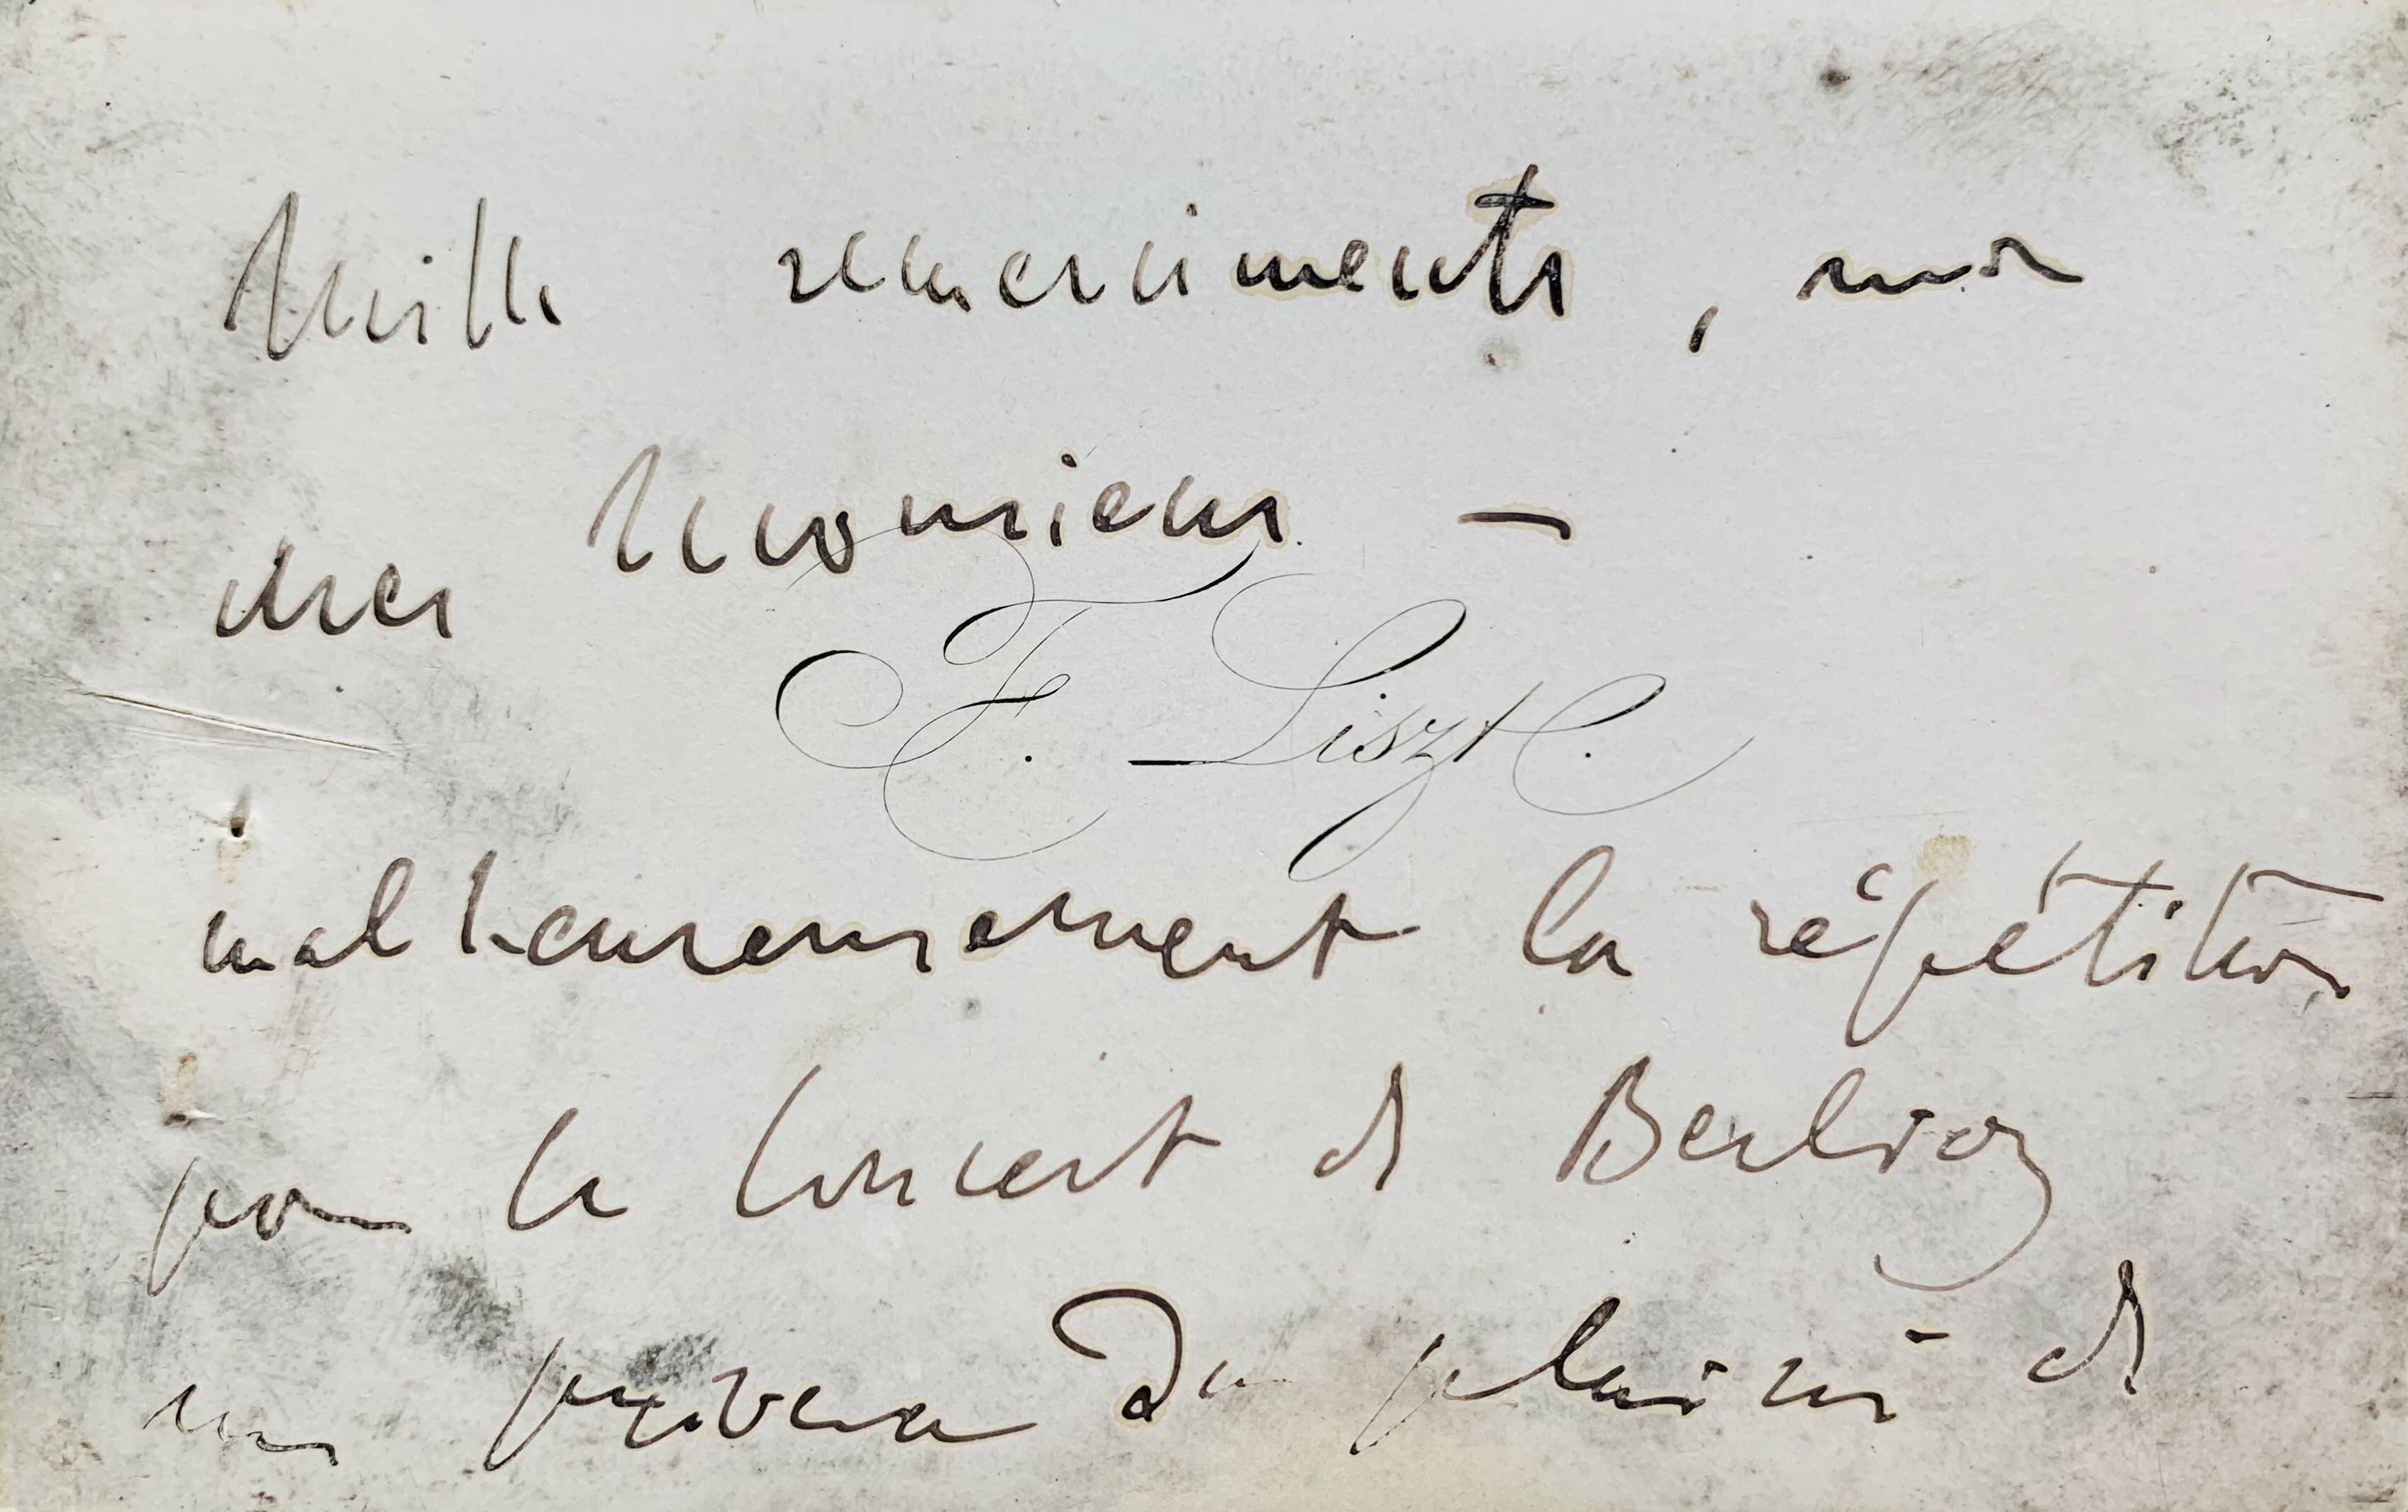 Mille remerciments, mon
cher Monsieur —
F. Liszt.
malheureusement la répétition
pour le Concert de Berlioz
me privera du plaisir de